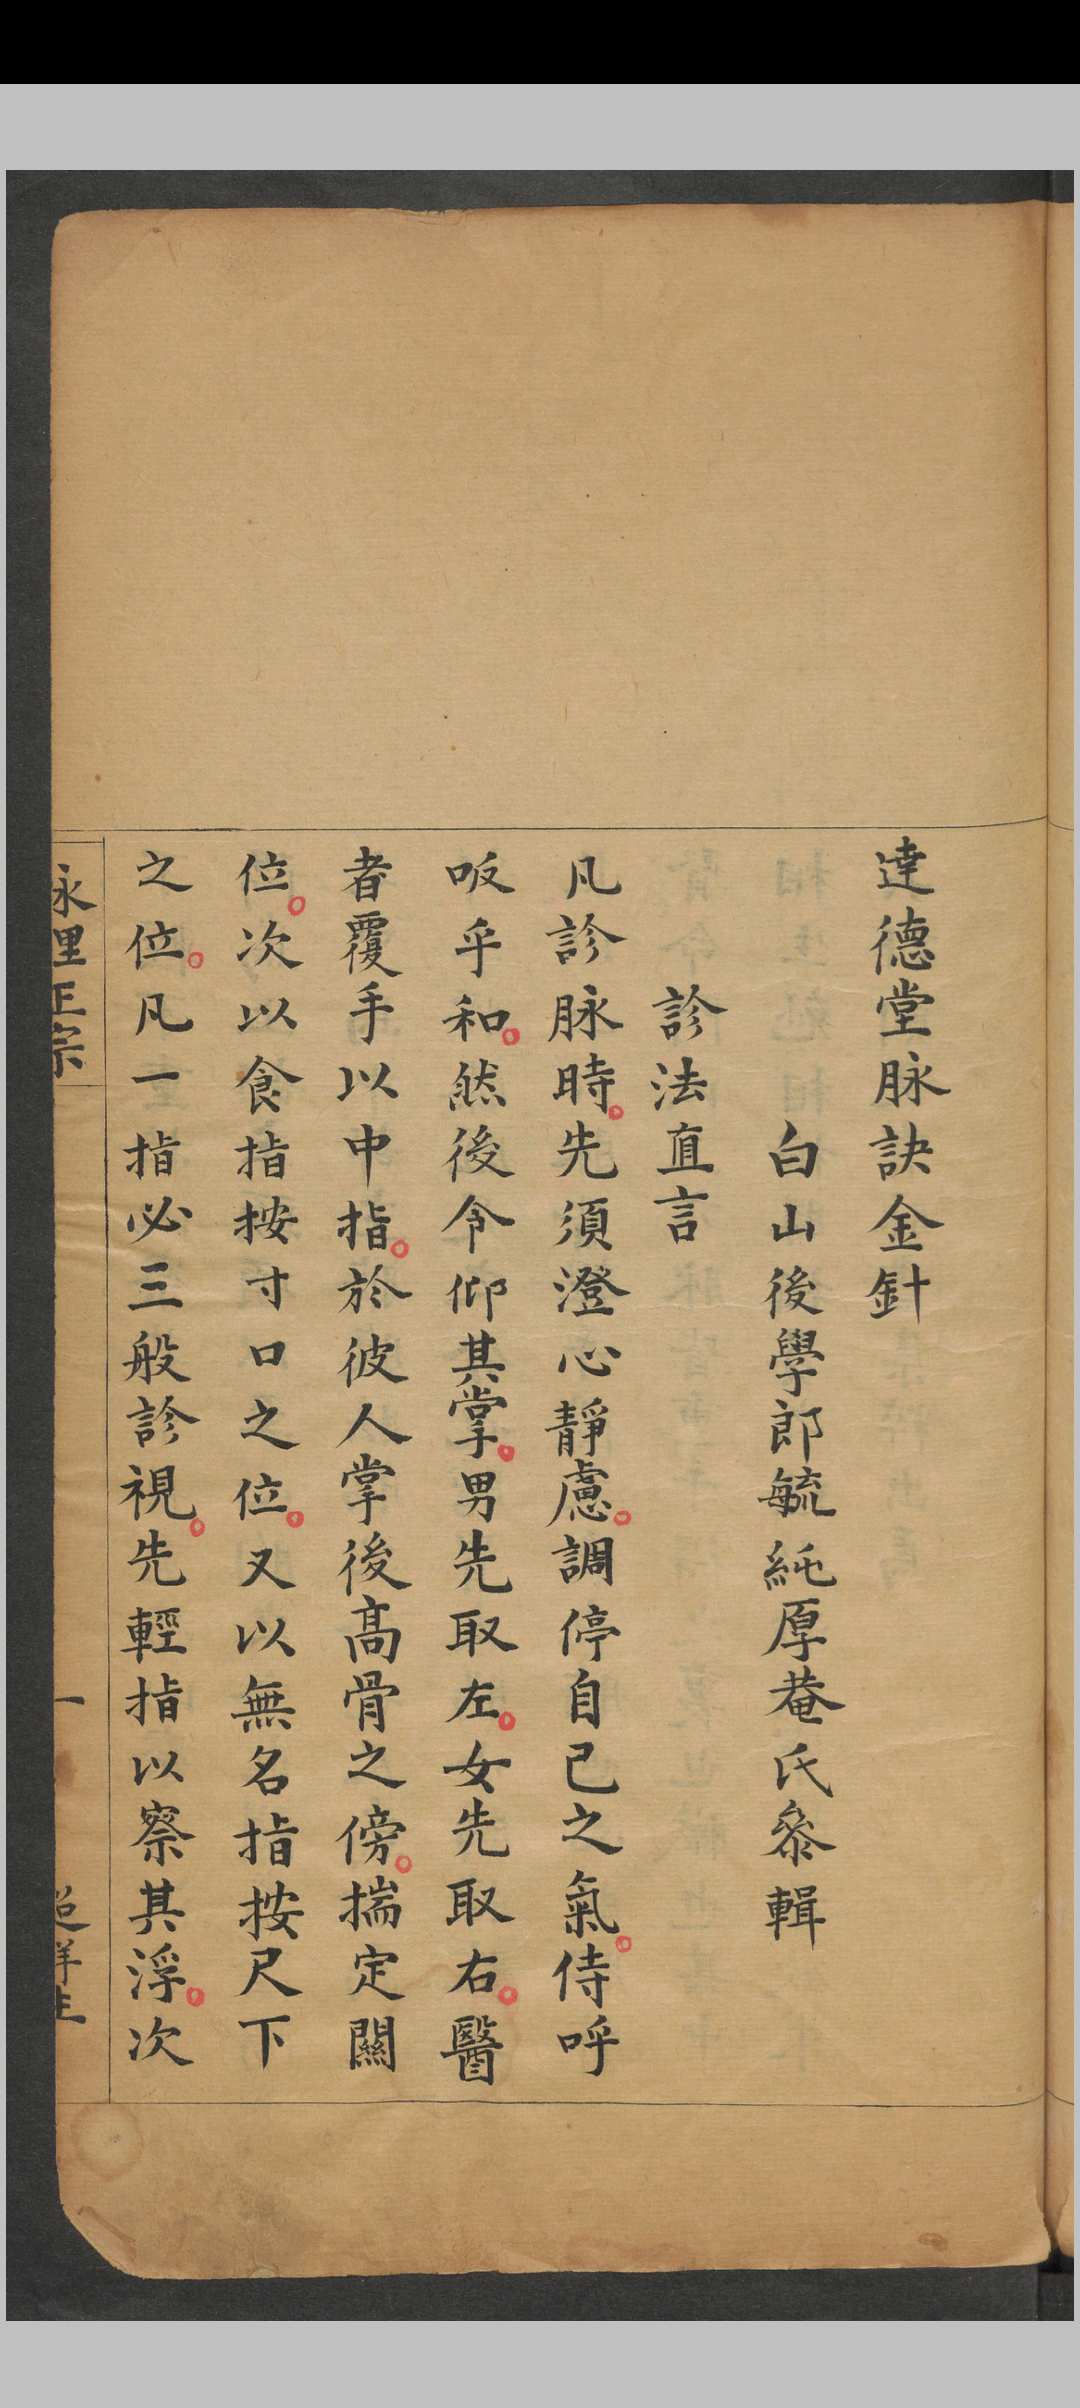 達德堂脉訣金針
白山後學郎毓純厚菴氏叅輯
診法直言
凡診脉時先須澄心靜慮調停自己之氣侍呼
吸乎和然後令仰其掌男先取左女先取右醫
者覆手以中指於彼人掌後髙骨之傍揣定關
位次以食指按寸口之位又以無名指按尺下
之位凡一指必三般診視先輕指以察其浮次
脉理正宗
一